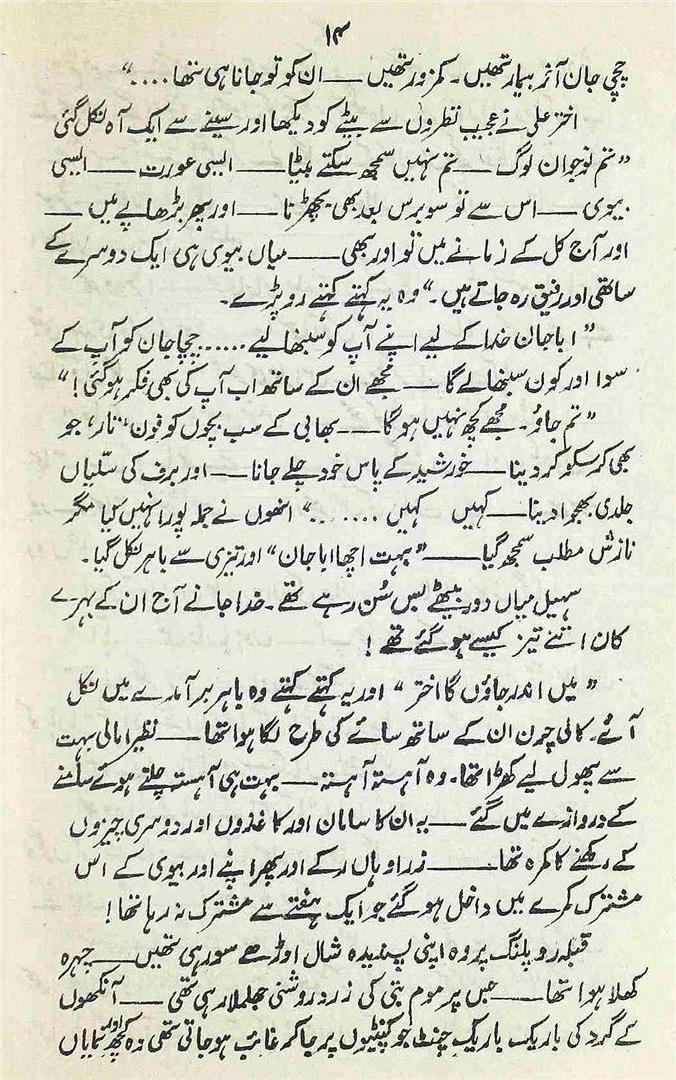 ۱۴
چچی جان آخر بیمار تھیں۔ کمزور تھیں — ان کو تو جانا ہی تھا ....“
اختر علی نے عجیب نظروں سے بیٹے کو دیکھا اور سینے سے ایک آہ نکل گئی
”تم نوجوان لوگ — تم نہیں سمجھ سکتے بیٹا — ایسی عورت — ایسی
بیوی — اس سے تو سو برس بعد بھی بچھڑنا — اور پھر بڑھاپے میں —
اور آج کل کے زمانے میں تو اور بھی — میاں بیوی ہی ایک دوسرے کے
ساتھی اور رفیق رہ جاتے ہیں۔“ وہ یہ کہتے کہتے رو پڑے۔
”ابا جان خدا کے لیے اپنے آپ کو سنبھالیے ...... چچا جان کو آپ کے
سوا اور کون سنبھالے گا — مجھے ان کے ساتھ اب آپ کی بھی فکر ہو گئی!“
”تم جاؤ۔ مجھے کچھ نہیں ہو گا — بھابی کے سب بچوں کو فون، تار، جو
بھی کر سکو کر دینا — خورشید کے پاس خود چلے جانا — اور برف کی سلیاں
جلدی بھجوا دینا — کہیں کہیں .......“ انھوں نے جملہ پورا نہیں کیا مگر
نازش مطلب سمجھ گیا — ”بہت اچھا ابا جان“ اور تیزی سے باہر نکل گیا۔
سہیل میاں دور بیٹھے بس سُن رہے تھے۔ خدا جانے آج ان کے بہرے
کان اتنے تیز کیسے ہو گئے تھے!
”میں اندر جاؤں گا اختر“ اور یہ کہتے کہتے وہ باہر برآمدے میں نکل
آئے۔ کالی چرن ان کے ساتھ سائے کی طرح لگا ہوا تھا — نظیرا مالی بہت
سے پھول لیے کھڑا تھا۔ وہ آہستہ آہستہ — بہت ہی آہستہ چلتے ہوئے سامنے
کے دروازے میں گئے — یہ ان کا سامان اور کاغذوں اور دوسری چیزوں
کے رکھنے کا کمرہ تھا — ذرا وہاں رکے اور پھر اپنے اور بیوی کے اس
مشترک کمرے میں داخل ہو گئے جو ایک ہفتے سے مشترک نہ رہا تھا!
قبلہ رو پلنگ پر وہ اپنی پسندیدہ شال اوڑھے سو رہی تھیں — چہرہ
کھلا ہوا تھا — جس پر موم بتی کی زرد روشنی جھلملا رہی تھی — آنکھوں
کے گرد کی باریک باریک چنٹ جو کنپٹیوں پر جا کر غائب ہو جاتی تھی وہ کچھ اور نمایاں